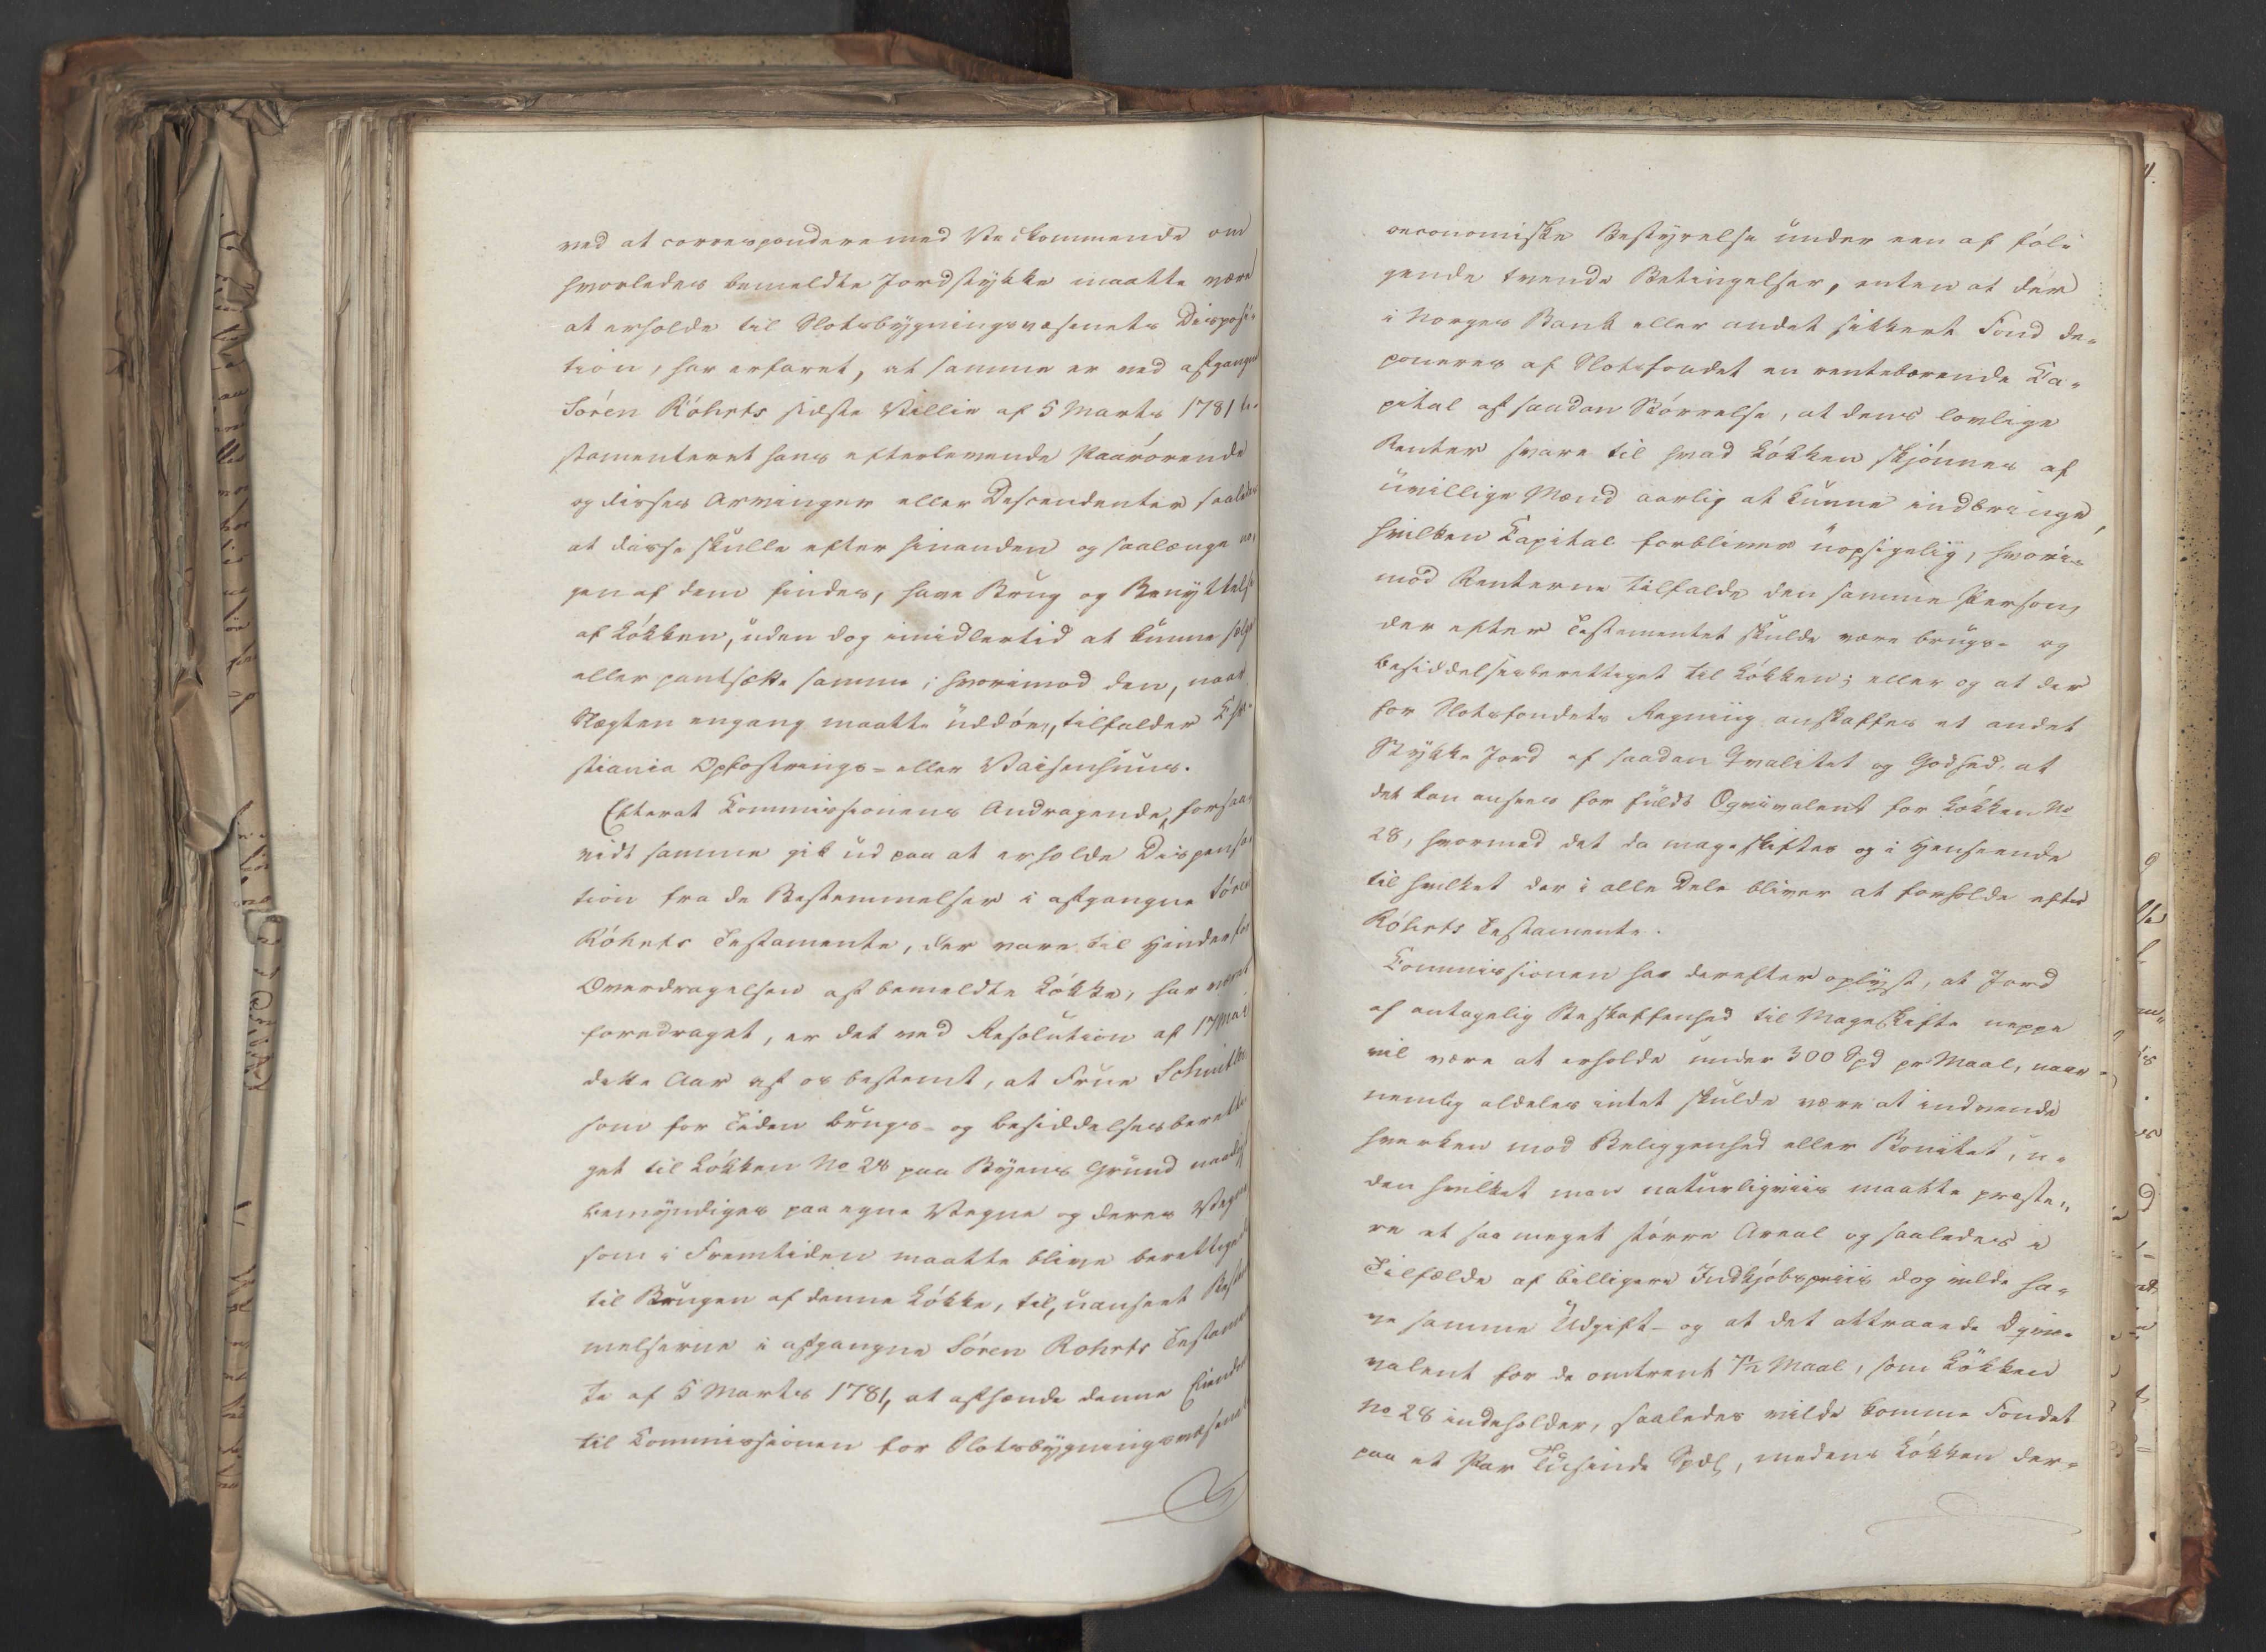 ved at correspondere med Vedkommende om
hvorledes bemeldte Jordstykke maatte være
at erholde til Slotsbygningsvæsenets Disposi-
tion, har erfaret, at samme er ved afgangne
Sören Röhrts sidste Villie af 5 Marts 1781 te-
stamenteret hans efterlevende Paarörende
og disses Arvinger eller Descendenter saaledes
at disse skulle efter hinanden og saalænge no-
gen af dem findes, have Brug og Benyttelse
af Lökken, uden dog imidlertid at kunne sælge
eller pantsætte samme; hvorimod den, naar
Slægten engang maatte uddöe, tilfalder Chri-
stiania Opfostrings- eller Vaisenhuus.
Efterat Commissionens Andragende, forsaa-
vidt samme gik ud paa at erholde Dispensa-
tion fra de Bestemmelser i afgangne Sören
Röhrts Testamente, der vare til Hinder for
Overdragelsen af bemeldte Lökke, har været
foredraget, er det ved Resolution af 17 Mai
dette Aar af os bestemt, at Frue Schmitler
som for Tiden brugs- og besiddelsesberetti-
get til Lökken No 28 paa Byens Grund naadigst
bemyndiges paa egne Vegne og deres Vegne
som i Fremtiden maatte blive berettigede
til Brugen af denne Lökke, til, uanseet Bestem-
melserne i afgangne Sören Rohrts Testamen-
te af 5 Marts 1781, at afhænde denne Eiendom
til Commissionen for Slotsbygningsvæsenets
oeconomiske Bestyrelse under een af föl-
gende tvende Betingelser, enten at der
i Norges Bank eller andet sikkert Fond de-
poneres af Slotsfondet en rentebærende Ca-
pital af saadan Störrelse, at dens lovlige
Renter svare til hvad Lökken skjönnes af
uvillige Mænd aarlig at kunne indbringe,
hvilken Capital forbliver uopsigelig, hvori-
mod Renterne tilfalde den samme Person,
der efter Testamentet skulde være brugs- og
besiddelsesberettiget til Lökken; eller og at der
for Slotsfondets Regning anskaffes et andet
Stykke Jord af saadan Qvalitet og Godhed, at
det kan ansees for fuldt Æqvivalent for Lökken No
28, hvormed det da mageskiftes og i Henseende
til hvilket der i alle Dele bliver at forholde efter
Röhrts Testamente.
Commissionen har derefter oplyst, at Jord
af antagelig Beskaffenhed til Mageskifte neppe
vil være at erholde under 300 Spd pr Maal, naar
nemlig aldeles intet skulde være at indvende
hverken mod Beliggenhed eller Bonitet, u-
den hvilket man naturligviis maatte præste-
re et saa meget större Areal og saaledes i
Tilfælde af billigere Indkjöbspriis dog vilde ha-
ve samme Udgift- og at det attraaede Æqvi-
valent for de omtrent 7½ Maal, som Lökken
No 28 indeholder, saaledes vilde komme Fondet
paa et Par Tusinde Spdl, medens Lökken der-